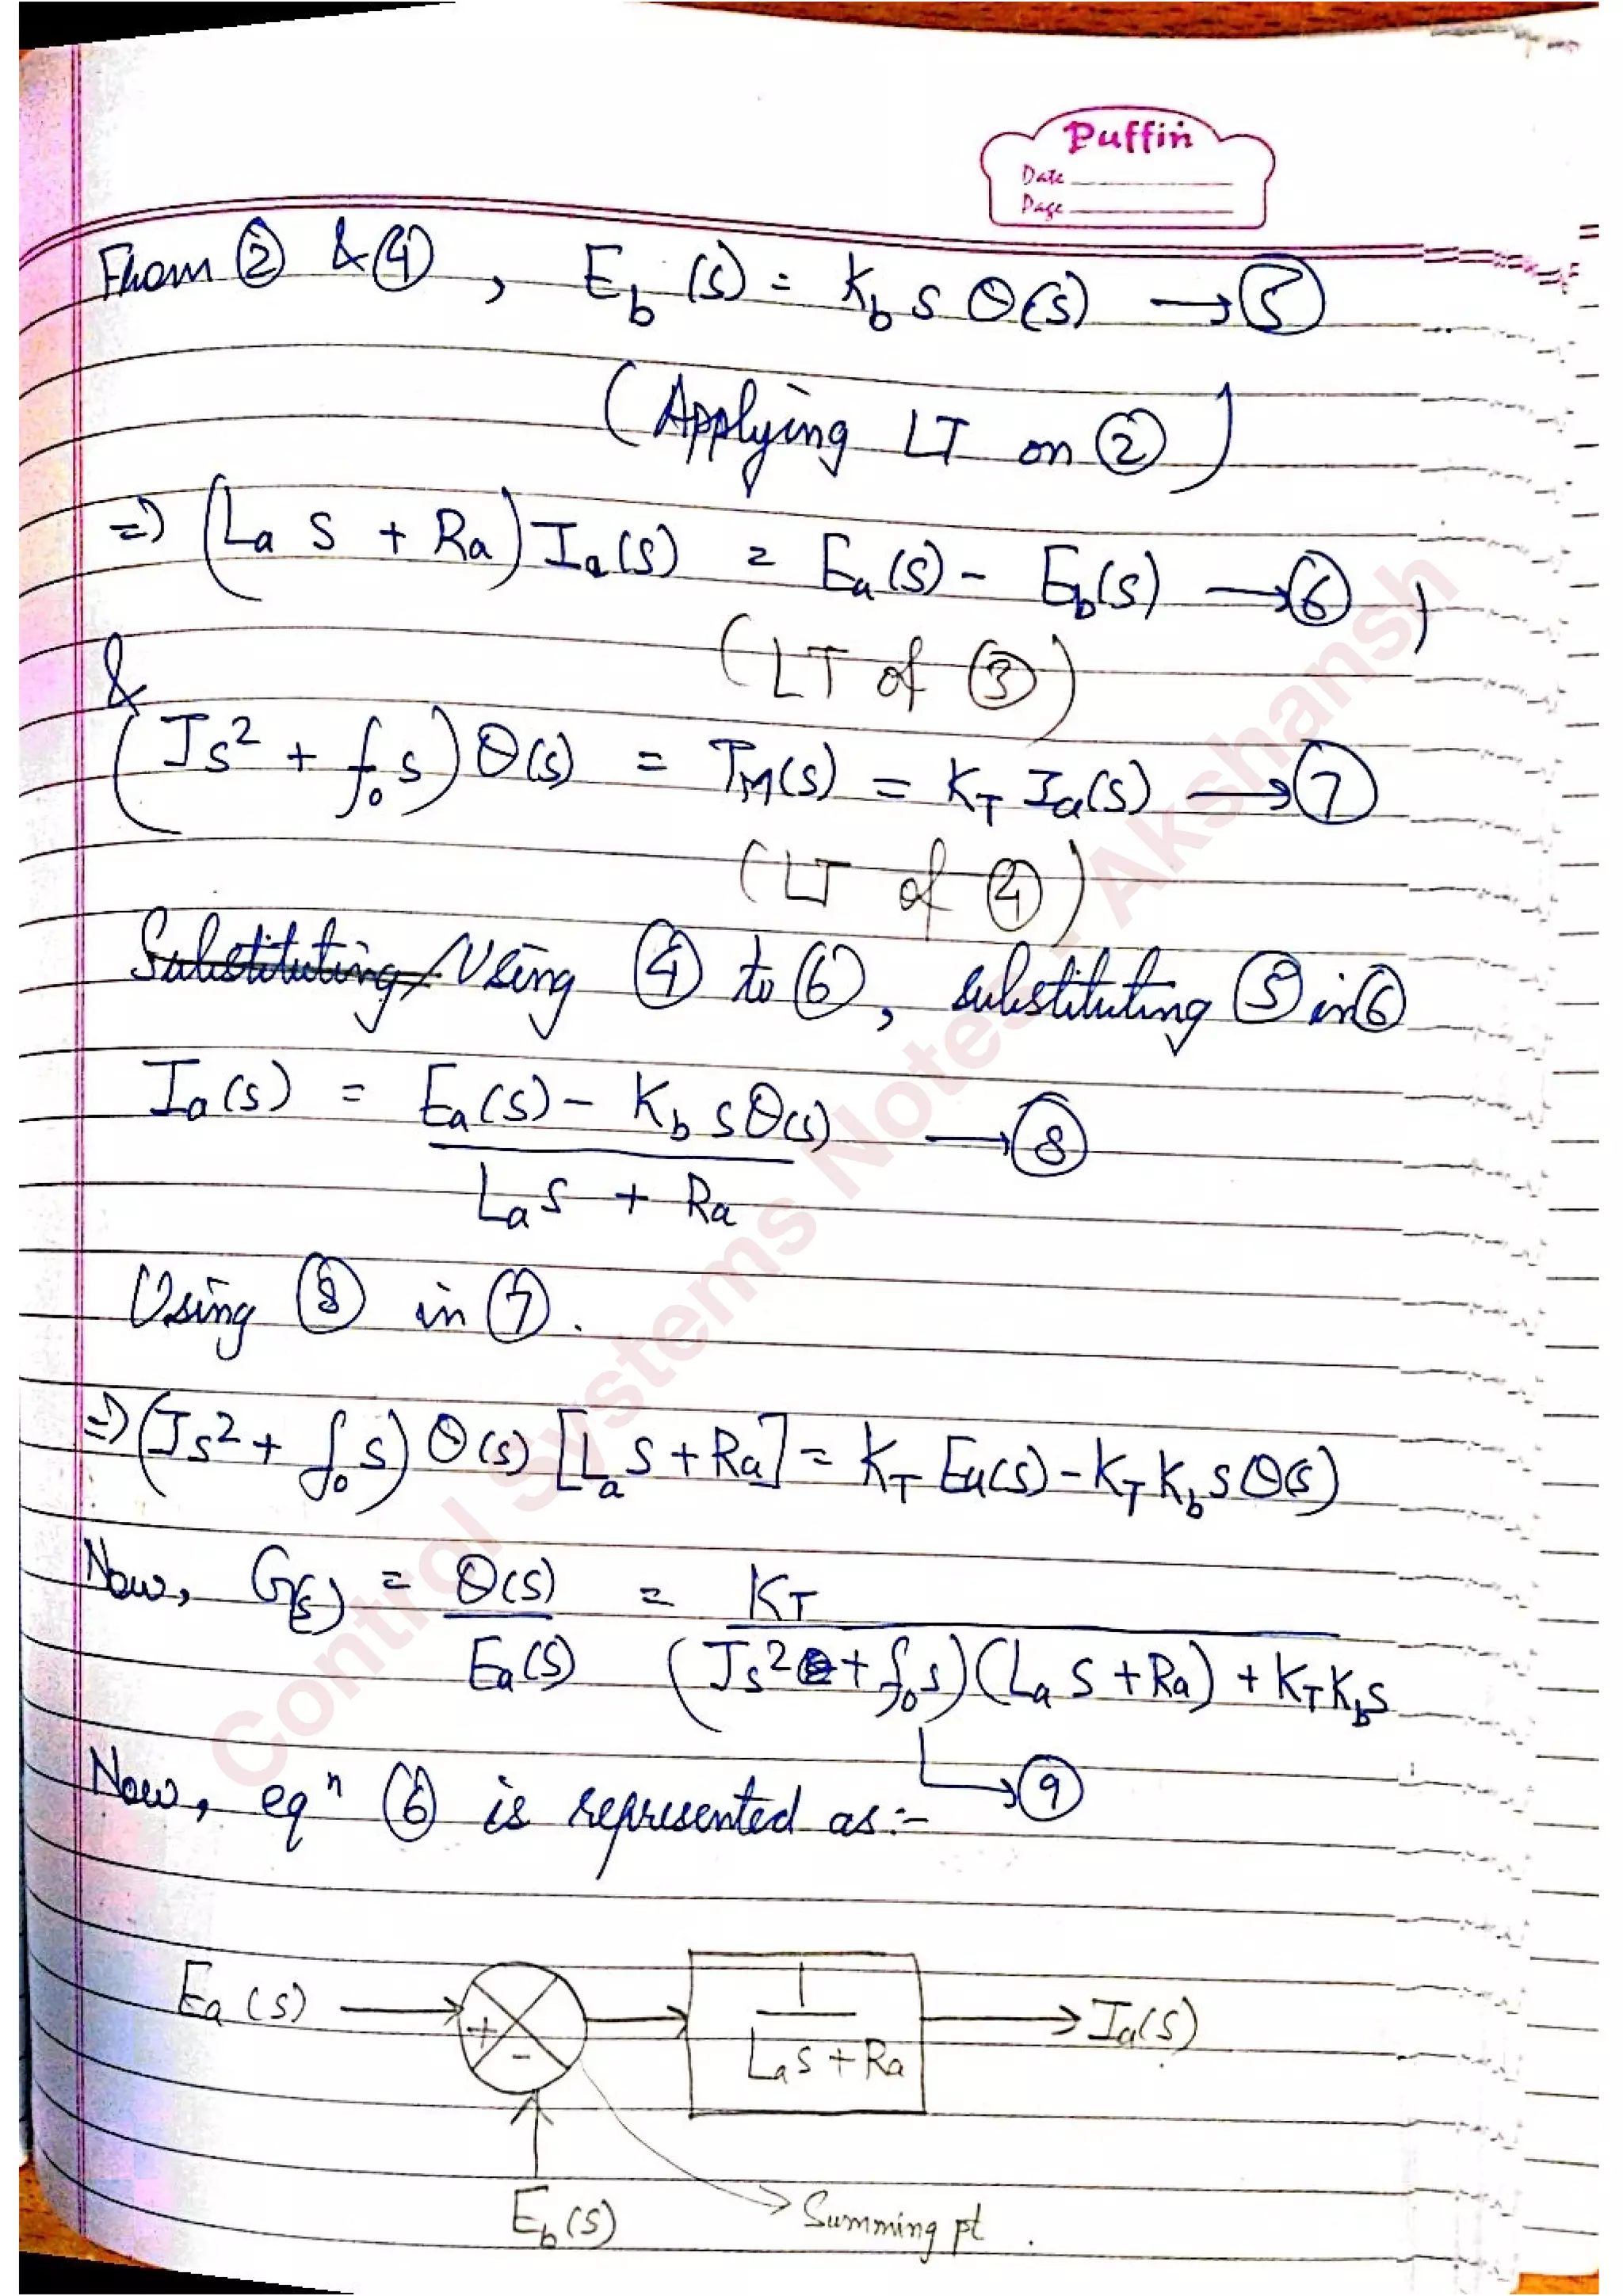 Puffin
Date
Page
From ② & ④, E_b(s) = K_b s Θ(s) → ⑤
(Applying LT on ②)
⇒ (L_a s + R_a) I_a(s) = E_a(s) - E_b(s) → ⑥,
(LT of ③)
&
(Js² + f₀s) Θ(s) = T_M(s) = K_T I_a(s) → ⑦
(LT of ④)
Substituting Using ④ to ⑥, substituting ⑤ in ⑥
I_a(s) = E_a(s) - K_b sΘ(s) → ⑧
L_a s + R_a
Using ⑧ in ⑦.
⇒ (Js² + f₀s) Θ(s) [L_a s + R_a] = K_T E_a(s) - K_T K_b sΘ(s)
Now, G(s) = Θ(s) = K_T
E_a(s) (Js² + f₀s)(L_a s + R_a) + K_T K_b s
→ ⑨
Now, eqⁿ ⑥ is represented as:-
E_a(s) → + - → 1 → I_a(s)
L_a s + R_a
E_b(s)
→ Summing pt.
Control Systems Notes - Akshansh